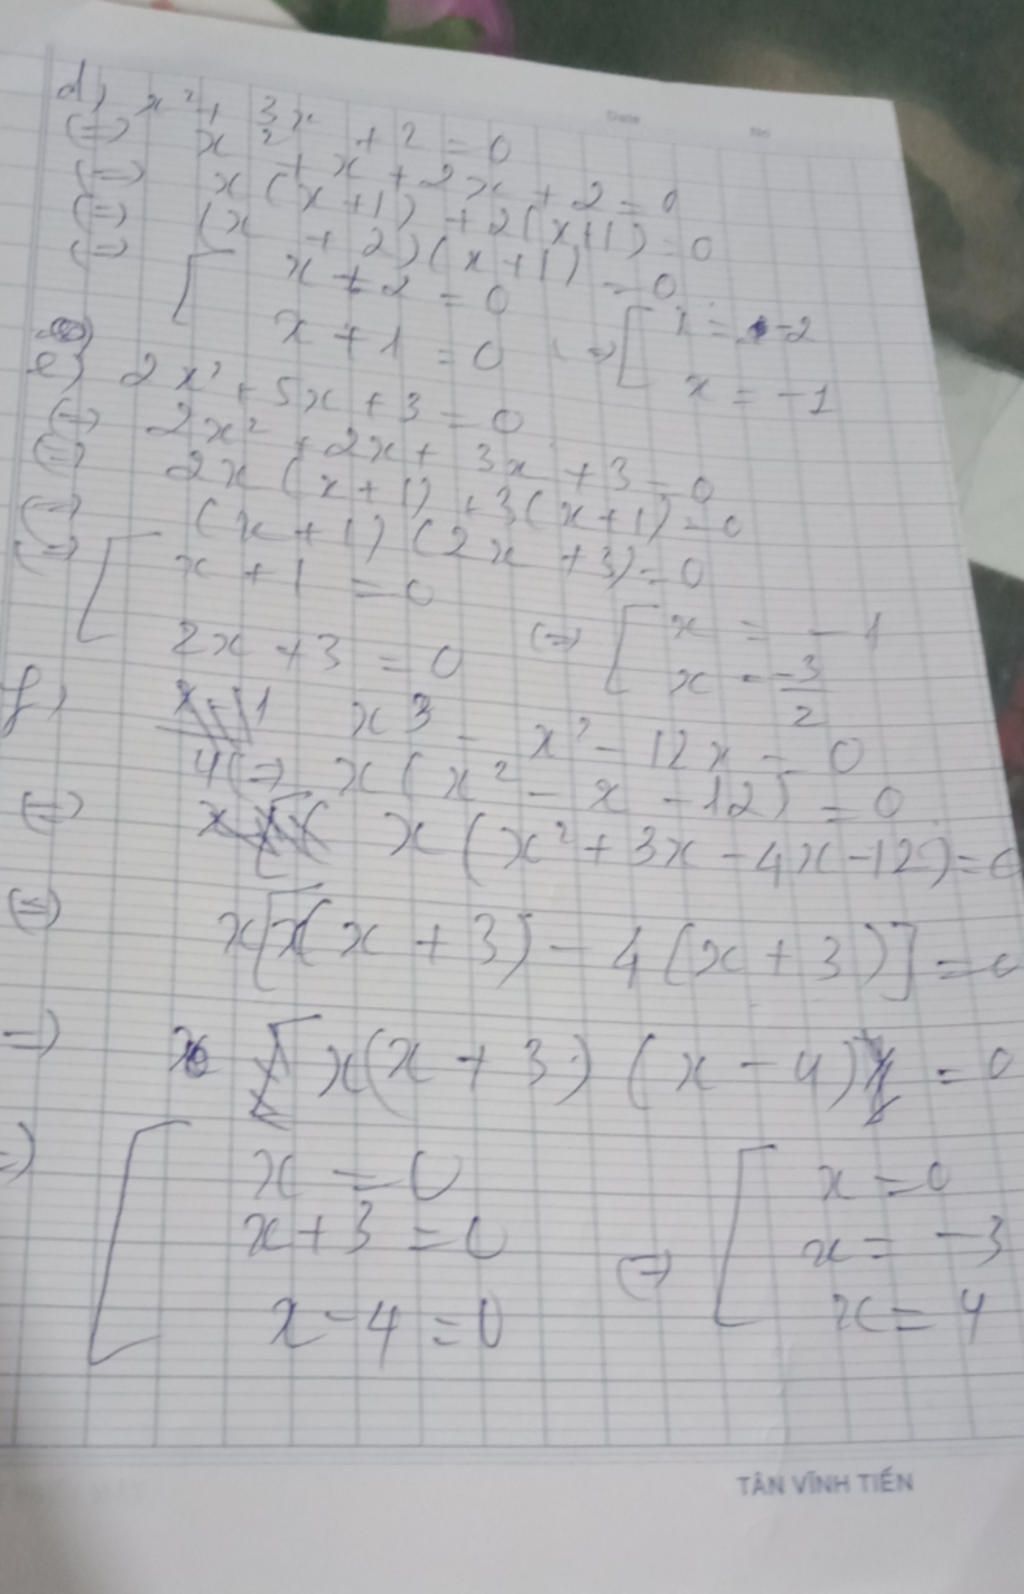 Date No
d) x² + 3x + 2 = 0
(=) x² + x + 2x + 2 = 0
(=) x(x+1) + 2(x+1) = 0
(=) (x + 2)(x+1) = 0
(=) [ x + 2 = 0
x + 1 = 0 (=) [ x = -2
x = -1
e) 2x² + 5x + 3 = 0
(=) 2x² + 2x + 3x + 3 = 0
(=) 2x(x+1) + 3(x+1) = 0
(=) (x+1)(2x+3) = 0
(=) [ x + 1 = 0
2x + 3 = 0 (=) [ x = -1
x = -3/2
f) x³ - x² - 12x = 0
(=) x(x² - x - 12) = 0
(=) x(x² + 3x - 4x - 12) = 0
(=) x[x(x + 3) - 4(x + 3)] = 0
(=) x(x + 3)(x - 4) = 0
(=) [ x = 0
x + 3 = 0
x - 4 = 0 (=) [ x = 0
x = -3
x = 4
TÂN VĨNH TIẾN